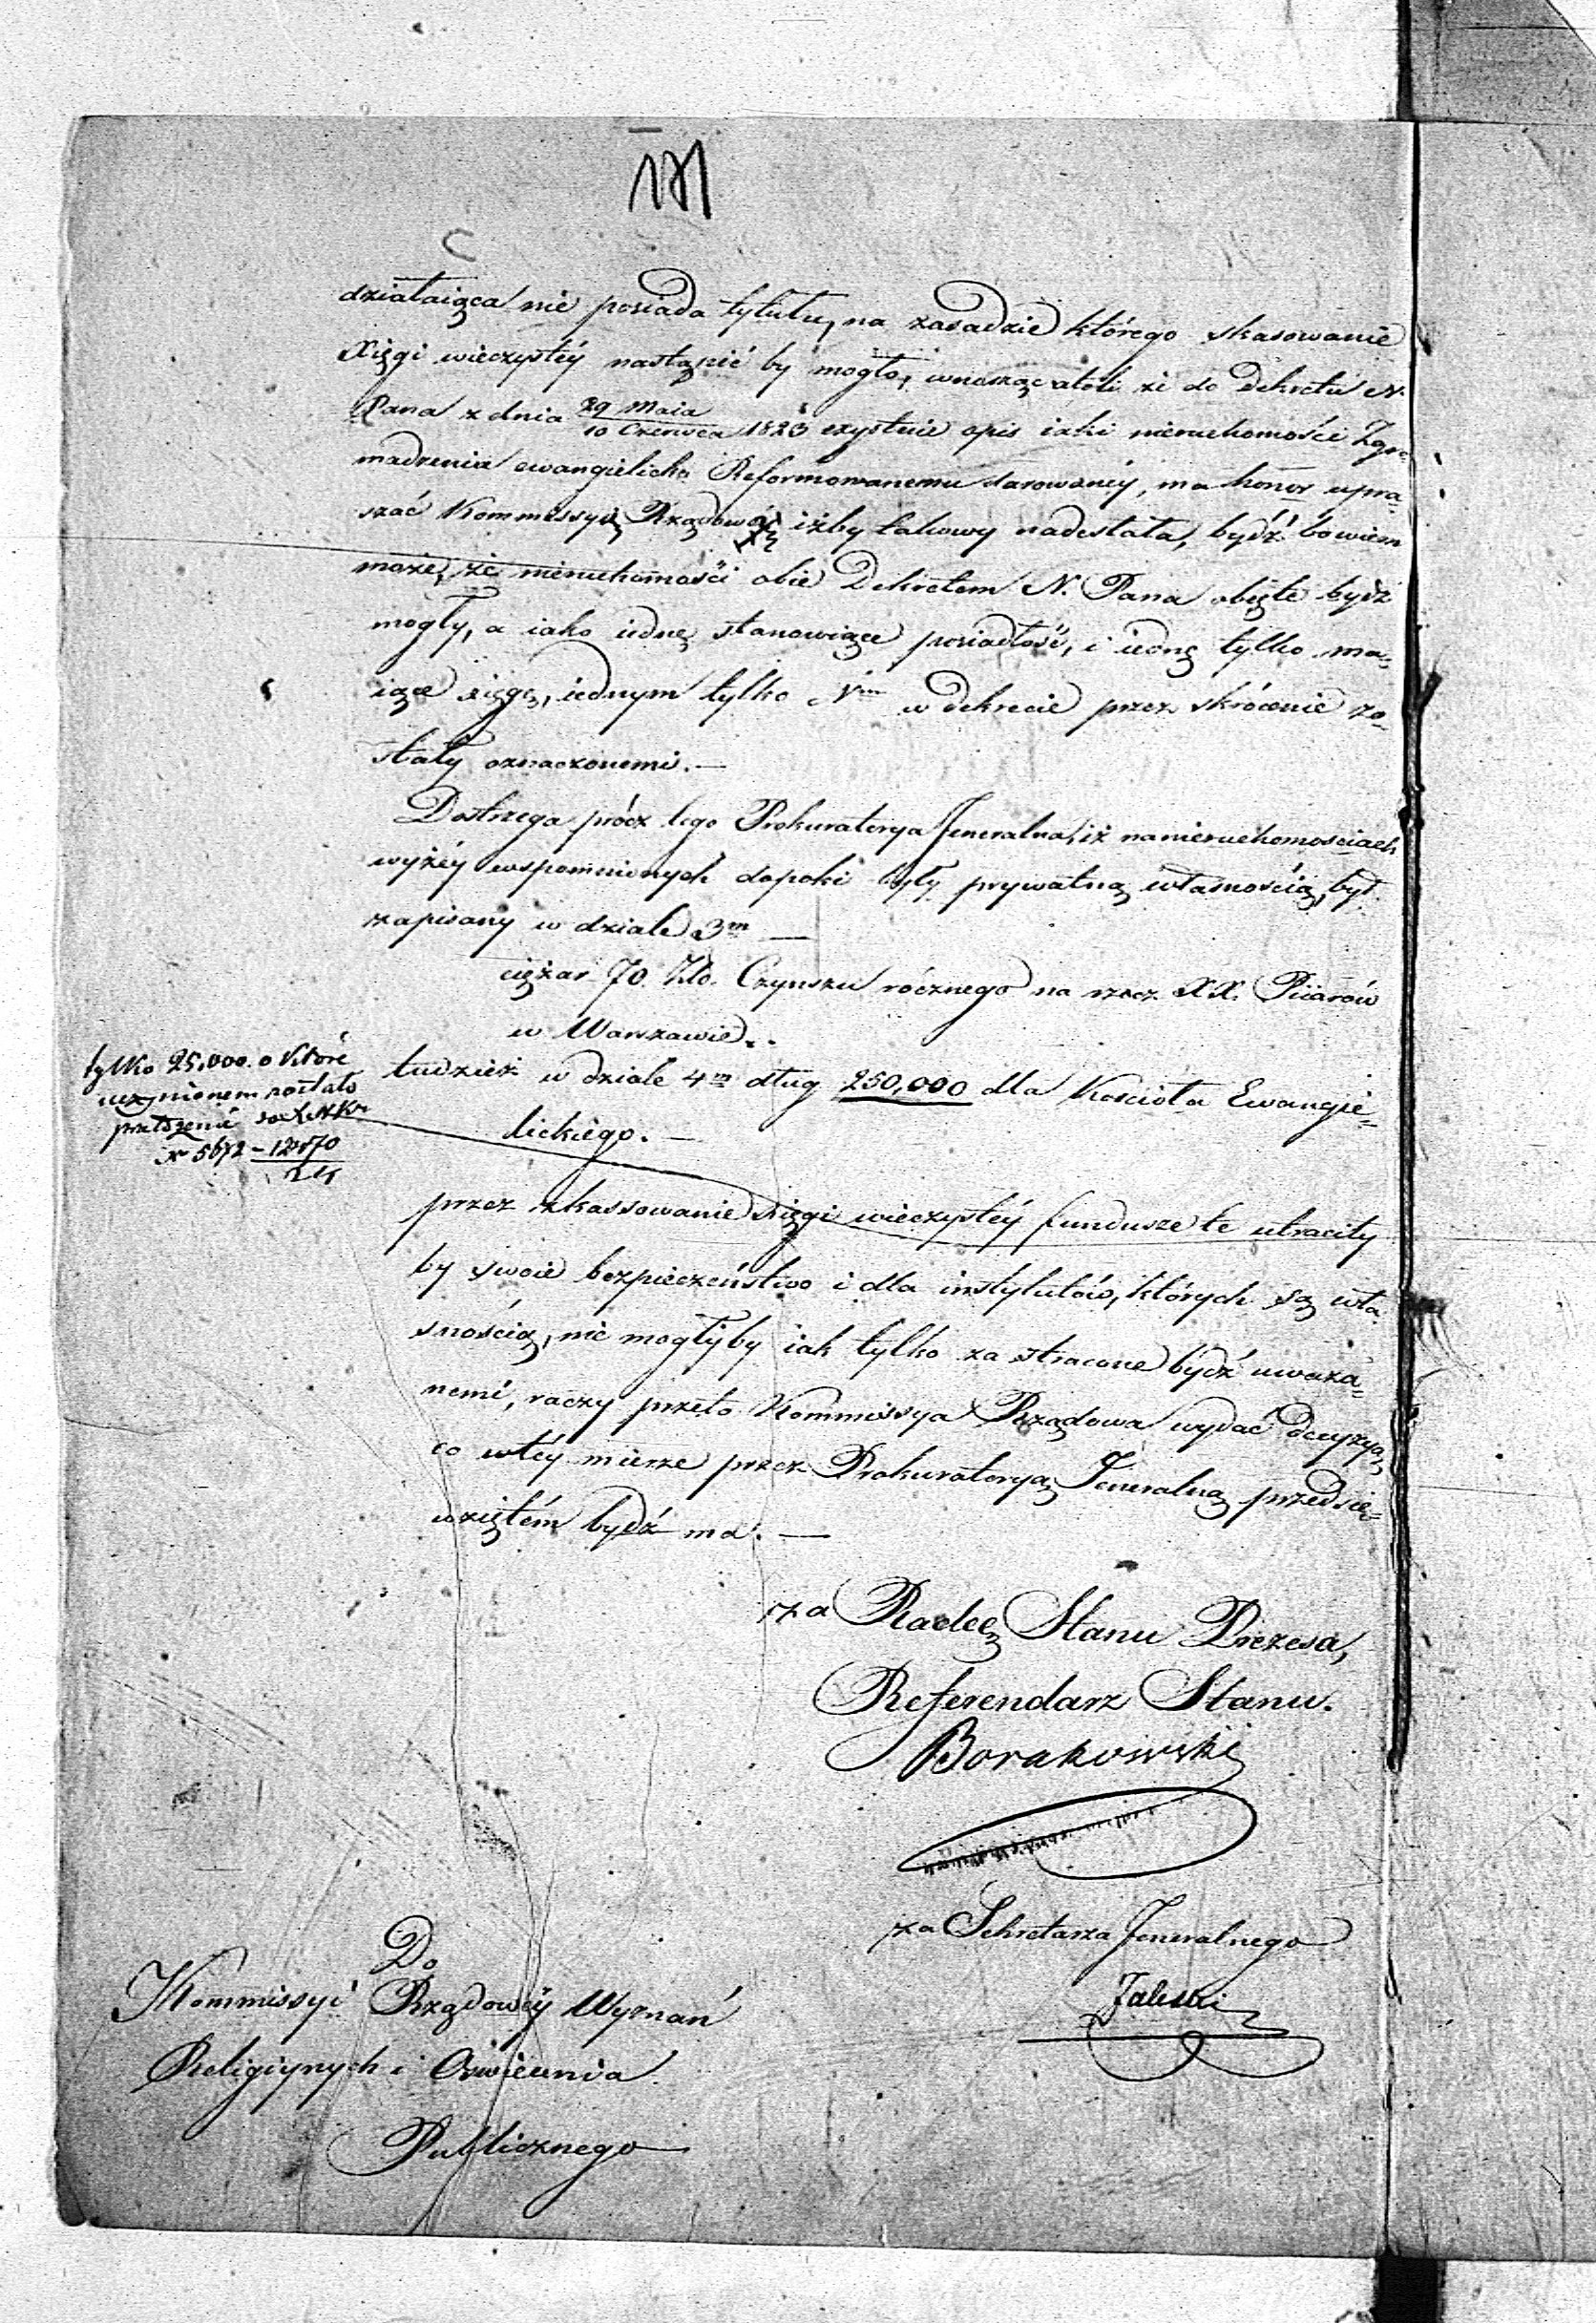 171
działaiąca nie posiada tytułu, na zasadzie którego skasowanie
Xięgi wieczystéy nastąpić by mogło, wnosząc atoli że do Dekretu N.
Pana z dnia 29 Maia / 10 Czerwca 1823 exystuie opis iaki nieruchomości Zgro=
madzenia ewangielicko Reformowanemu darowanéy, ma honor upra=
szać Kommissyą Rządową iżby takowy nadesłała, bydź bowiem
może, że nieruchomości obie Dekretem N. Pana obięte bydź
mogły, a iako iednę stanowiące posiadłość, i iedną tylko ma=
iące xięgę, iednym tylko Nrm w dekrecie przez skrócenie zo=
stały oznaczonemi. —
Dostrzega prócz tego Prokuratorya Jeneralna, iż na nieruchomościach
wyżéy wspomnionych dopoki były prywatną własnością, był
zapisany w dziale 3m —
ciężar 70. Złp. Czynszu rócznego na rzecz XX. Piiarów
w Warszawie.
tudzież w dziale 4m dług 250,000 dla Kościoła Ewangie=
lickiego. —
tylko 25,000. o które
uczynionem zostało
przełożenie
N 5672 – 12170
24
przez skassowanie xięgi wieczystéy fundusze te utraciły
by swoie bezpieczeństwo i dla instytutów, których są wła
snością, nie mogłyby iak tylko za stracone bydź uważa=
nemi, raczy przeto Kommissya Rządowa wydać decyzyą,
co w téy mierze przez Prokuratoryą Jeneralną przedsię=
wziętém bydź ma. —
za Radcę Stanu Prezesa,
Referendarz Stanu.
Borakowski
za Sekretarza Jeneralnego
Zaleski
Do
Kommissyi Rządowéy Wyznań
Religiynych i Oświecenia
Publicznego